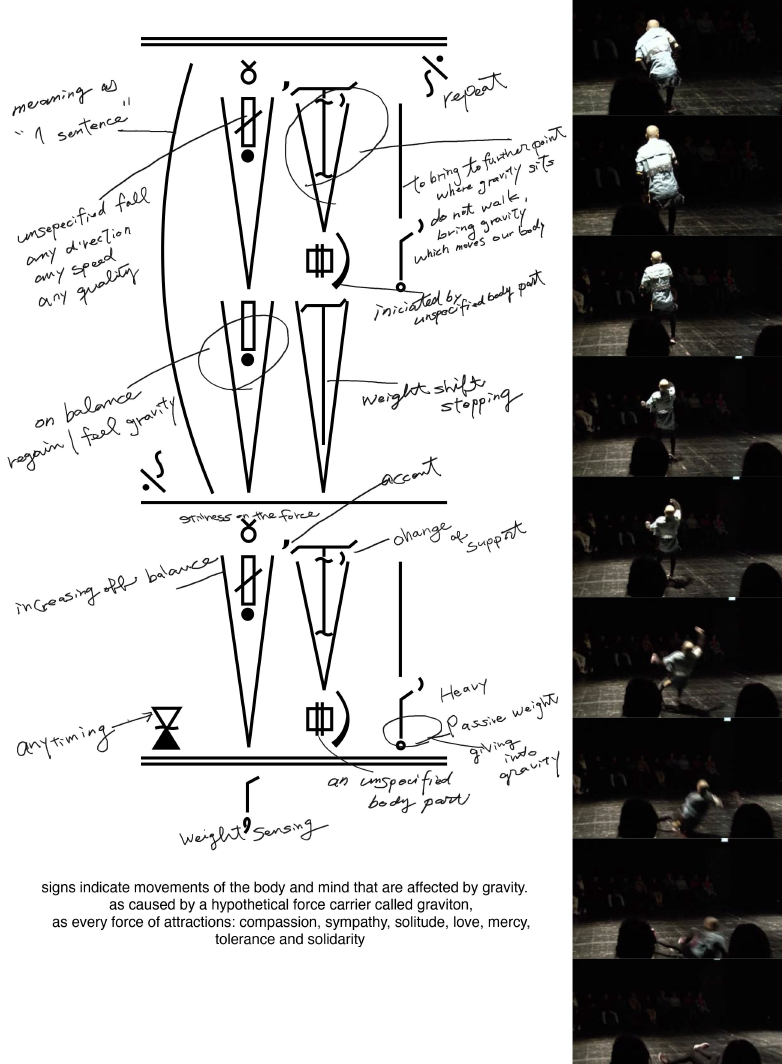 meaning as
"1 sentence"
repeat
to bring to further point
where gravity sits
do not walk,
bring gravity
which moves our body
unsepecified fall
any direction
any speed
any quality
iniciated by
unspecified body part
on balance
regain / feel gravity
weight shift
stopping
accent
stillness on the force
change of
support
increasing off balance
Heavy
Passive weight
giving
into
gravity
any timing
an unspecified
body part
weight sensing
signs indicate movements of the body and mind that are affected by gravity.
as caused by a hypothetical force carrier called graviton,
as every force of attractions: compassion, sympathy, solitude, love, mercy,
tolerance and solidarity